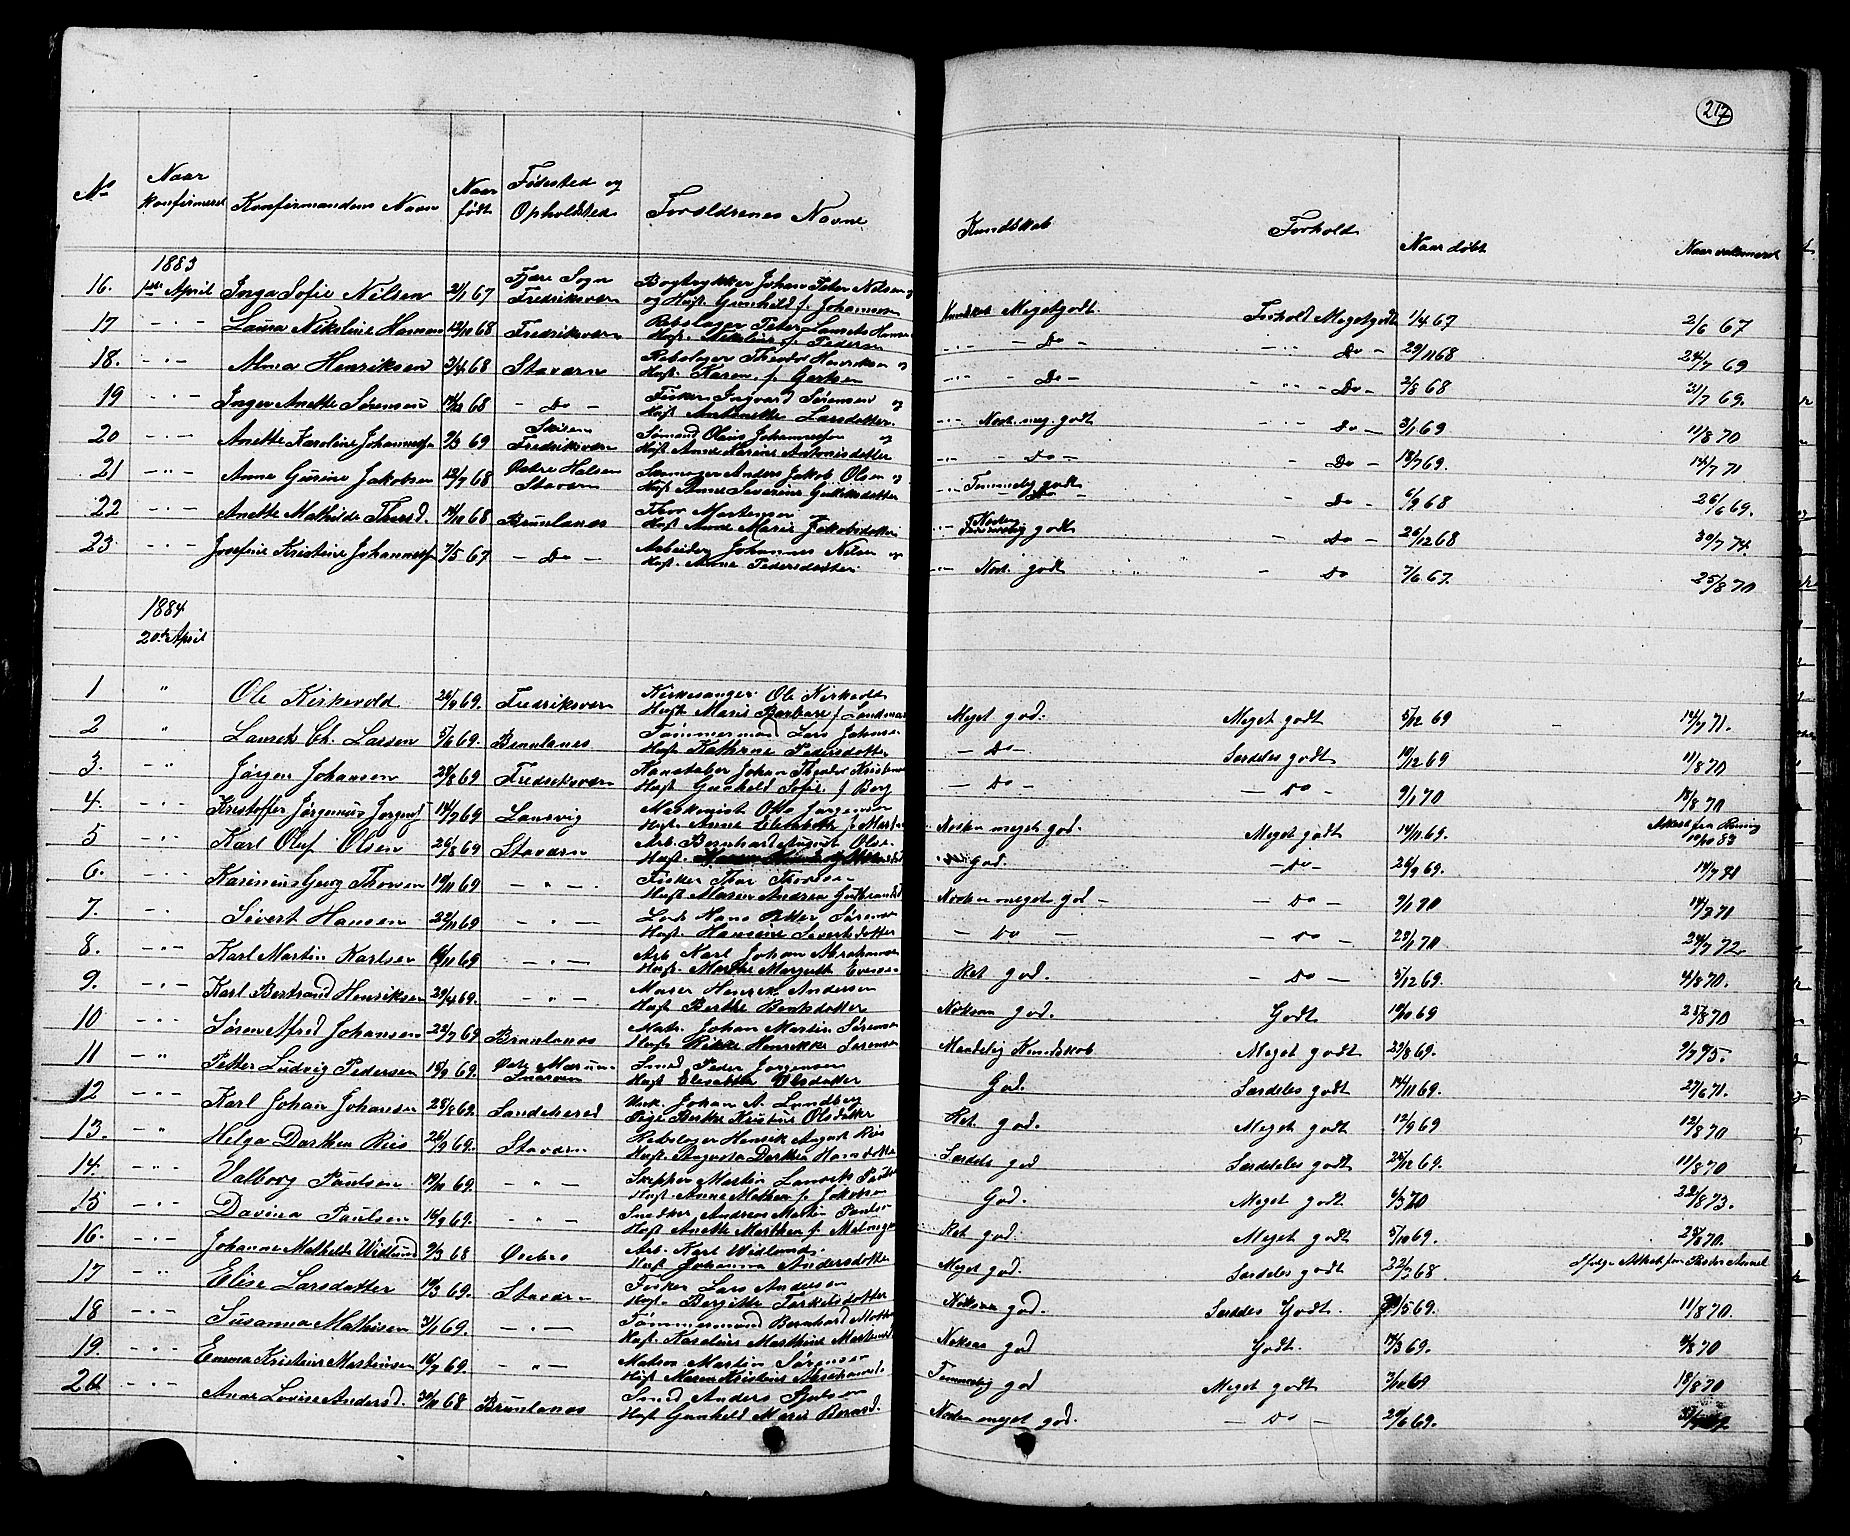 217
No Naar Konfirmeret Konfirmandens Navn Naar født Fødested og Opholdsted Forældrenes Navne Kundskab Forhold Naar døbt Naar vaksineret
1883
16. 1ste April Inga Sofie Nilsen 2/1 67 Fjære Sogn Fredriksværn Bogtrykker Johan Peter Nilsen og Hust. Gunhild f. Johannesen Kundskab Megetgodt. Forhold Megetgodt 1/4 67 2/6 67
17 - " - Laura Nikoline Hansen 12/10 68 Fredriksværn Rebslager Peter Laurits Hansen Hust. Nikoline f. Pedersen - Do - - Do - 29/11 68 24/7 69
18. - " - Alma Henriksen 3/4 68 Staværn Rebslager Theodor Henriksen og Hust. Karen f. Gertsen - Do - - Do - 2/8 68 21/7 69.
19 - " - Inger Anette Sørensen 68 - Do - Fisker Ingvard Sørensen og Hust. Antonette Larsdatter. Nok. meg. godt - Do - 3/1 69 11/8 70
20 - " - Anette Karoline Johannesen 9/3 69 Fredriksværn Sømand Olaus Johannessen og Hust. Anne Karine Antonisdatter - Do - - Do - 18/7 69. 14/7 71
21 - " - Anne Gurine Jakobsen 12/7 68 Østre Halsen Staværn Anders Jakob Olsen og Hust. Anne Severine Gulliksdatter Temmelig godt - Do - 6/9 68 26/6 69.
22 - " - Anette Mathilde Thorsd. 68 Brunlanes Thor Mortensen og Hust. Anne Marie Jakobsdatter godt - Do - 26/12 68 30/7 74.
23 - " - Josefine Kristine Johannesen 7/5 67 - Do - Arbeider Johannes Nilsen og Hust. Anne Pedersdatter Nok. godt - Do 7/6 67. 25/8 70
1884
20de April
1 " Ole Kirkevold 26/9 69. Fredriksværn Kirkesanger Ole Kirkevold Hust. Marie Barbara f. Landmark Meget god. Meget godt 5/12 69 14/7 71.
2 " Laurits Ch. Larsen 5/6 69. Brunlanes Tømmermand Lars Johansen Hust. Kathrine Pedersdatter - Do - Særdeles godt 19/12 69 11/8 70
3. " Jørgen Johansen 24/8 69 Fredriksværn Konstabel Johan Theodor Kristensen Hust. Gunhild Sofie f. Berg - Do - - Do - 9/1 70 18/8 70
4. - " - Kristoffer Jørgenius Jørgens 14/7 69 Langvig Maskinist Otto Jørgensen Hust. Anne Elisabeth f. Nok en meget god. Meget godt 14/11 69. Attest fra 83
5 - " - Karl Oluf Olsen 26/8 69 Staværn Arb. Bernhard August Olsen Hust. god. - Do - 26/9 69.
6. - " - Karinius Georg Thorsen 19/11 69 - " - Fisker Thor Thorsen Hust. Maren Andrea Gulbrandsd. Nok en meget god - - Do - 9/1 70 14/7 71
7. - " Sivert Hansen 22/11 69 - " - Lods Hans Petter Sørensen Hust. Hansine Sivertsdatter - Do - - Do - 23/1 70 24/7 72
8. - " - Karl Martin Karlsen 11 69 - " - Arb. Karl Johan Abrahamsen Hust. Marthe Margrethe Evensen Ret god. - Do - 5/12 69. 4/8 70.
9. - " - Karl Bertrand Henriksen 29/4 69. - " - Murer Henrik Andersen Hust. Berthe Bentsdatter Noksaa god. Godt 19/10 69 25/8 70
10 - " - Søren Alfred Johansen 22/7 69 Brunlanes Matr. Johan Martin Sørensen Hust. Rikke Henrikke Sørensen Maadelig Kundskab Meget godt 29/8 69. 9/7 75.
11 - " Petter Ludvig Pedersen 69. Smed Peder Jørgensen Hust. Elisabeth Olsdatter God. Særdeles godt 14/11 69. 27/6 71.
12 - " - Karl Johan Johansen 28/8 69 Sandeherred Johan A. Lundberg Pige Berthe Kristine Olsdatter Ret god. Meget godt 12/9 69 12/8 70
13. - " Helga Dorthea Riis 26/9 69. Staværn Rebslager Henrik August Riis Hust. Augusta Dorthea Hansdatter Særdeles god Særdeles godt 26/12 69. 11/8 70
14. - " - Valborg Paulsen 19/10 69. - " - Skipper Martin Laurits Paulsen Hust. Anne Mathea f. Jakobsen God. Meget godt 6/3 70 22/8 73.
15 - " - Davina Paulsen 16/9 69. - " - Snedker Andreas Martin Paulsen Hust. Anette Marthea f. Ret god. Meget godt 5/10 69. 25/8 70.
16. - " - Johanne Mathilde Widlund 9/3 68 Ørebro Arb. Karl Widlund Hust. Johanna Andersdatter Meget god. Særdeles godt 22/3 68 Ifølge Attest fra
17 - " Elise Larsdatter 19/3 69. Staværn Fisker Lars Andersen Hust. Bergitte Torkelsdatter Noksaa god. Særdeles Godt. 5 69. 11/8 70.
18 - " - Susanna Mathisen 3/1 69. - " - Tømmermand Bernhard Hust. Karoline Marthine Noksaa god Godt. 3 69. 4/8 70
19. - " - Emma Kristine Martinsen 16/7 69. - " - Matros Martin Sørensen Hust. Maren Kristine Temmelig god Meget godt 3/10 69 18/8 70
20 - " - Anne Lovise Andersd. 30/11 68 Brunlanes Smed Anders Hust. Gunhild Marie Nok en meget god. - Do - 20/6 69.